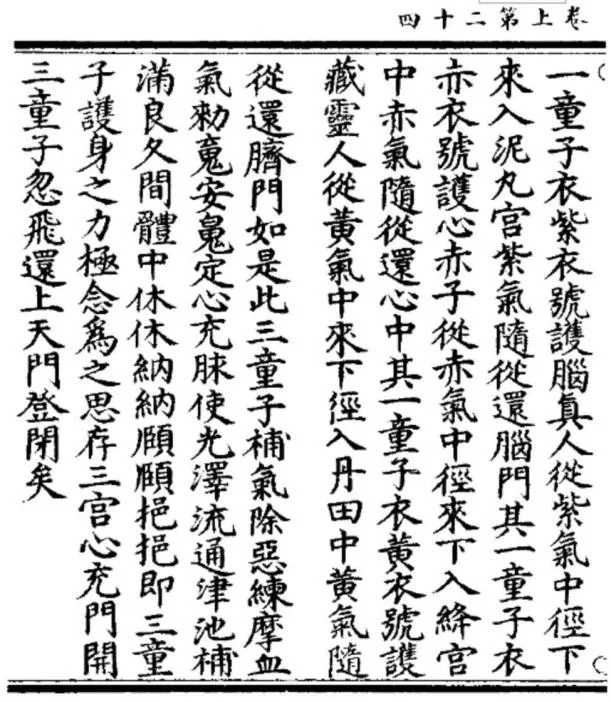 卷上第二十四
一童子衣紫衣號護腦真人從紫氣中徑下
來入泥丸宮紫氣隨從還腦門其一童子衣
赤衣號護心赤子從赤氣中徑來下入絳宮
中赤氣隨從還心中其一童子衣黃衣號護
藏靈人從黃氣中來下徑入丹田中黃氣隨
從還臍門如是此三童子補氣除惡練摩血
氣勑䰟安䰟定心充脉使光澤流通津池補
滿良久間體中休休納納頤頤挹挹即三童
子護身之力極念爲之思存三宮心充門開
三童子忽飛還上天門登閉矣